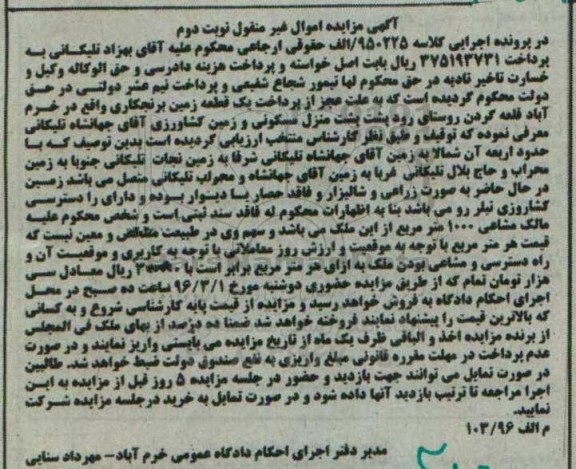 آگهی مزایده اموال غیر منقول نوبت دوم
در پرونده اجرایی کلاسه ۹۵۰۲۲۵/الف حقوقی ارجاعی محکوم علیه آقای بهزاد تلیکانی به
پرداخت ۳۷۵۱۹۳۷۳۱ ریال بابت اصل خواسته و پرداخت هزینه دادرسی و حق الوکاله وکیل و
خسارت تاخیر تادیه در حق محکوم لها تیمور شجاع شفیعی و پرداخت نیم عشر دولتی در حق
دولت محکوم گردیده است که به علت عجز از پرداخت یک قطعه زمین برنجکاری واقع در خرم
آباد قلعه گردن روستای رود پشت پشت منزل مسکونی و زمین کشاورزی آقای جهانشاه تلیکانی
معرفی نموده که توقیف و طبق نظر کارشناس منتخب ارزیابی گردیده است بدین توصیف که با
حدود اربعه آن شمالا به زمین آقای جهانشاه تلیکانی شرقا به زمین نجات تلیکانی جنوبا به زمین
محراب و حاج بلال تلیکانی غربا به زمین آقای جهانشاه و تلیکانی متصل می باشد زمین
در حال حاضر به صورت زراعی و شالیزار و فاقد حصار یا دیوار بوده و دارای راه دسترسی
کشاورزی تیلر رو می باشد بنا به اظهارات محکوم له فاقد سند ثبتی است و شخص محکوم علیه
مالک مشاعی ۱۰۰۰ متر مربع از این ملک می باشد و سهم وی در طبیعت و معین نیست که
قیمت هر متر مربع با توجه به موقعیت و ارزش روز معاملاتی با توجه به کاربری و موقعیت آن و
راه دسترسی و مشاعی بودن ملک به ازای هر متر مربع برابر است با ریال معادل سی
هزار تومان تمام که از طریق مزایده حضوری دوشنبه مورخ ۹۶/۳/۱ ساعت ده صبح در محل
اجرای احکام دادگاه به فروش خواهد رسید و مزایده از قیمت پایه کارشناسی شروع و به کسانی
که بالاترین قیمت را پیشنهاد نمایند فروخته خواهد شد ضمنا ده درصد از بهای ملک فی المجلس
از برنده مزایده اخذ و الباقی ظرف یک ماه از تاریخ مزایده می بایستی واریز نمایند و در صورت
عدم پرداخت در مهلت مقرره قانونی مبلغ واریزی به نفع صندوق دولت ضبط خواهد شد. طالبین
در صورت تمایل می توانند جهت بازدید و حضور در جلسه مزایده ۵ روز قبل از مزایده به این
اجرا مراجعه تا ترتیب بازدید آنها داده شود و در صورت تمایل به خرید درجلسه مزایده شرکت
نمایید.
م الف ۱۰۳/۹۶
مدیر دفتر اجرای احکام دادگاه عمومی خرم آباد- مهرداد سنایی